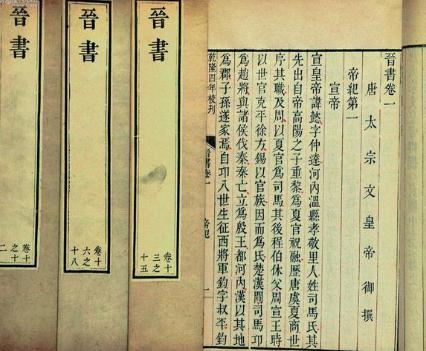 晉書卷一
唐太宗文皇帝御撰
帝紀第一
宣帝
宣皇帝諱懿字仲達河內溫縣孝敬里人姓司馬氏其
先出自帝高陽之子重黎爲夏官祝融歷唐虞夏商世
序其職及周以夏官爲司馬其後程伯休父周宣王時
以世官克平徐方錫以官族因而爲氏楚漢間司馬卬
爲趙將與諸侯伐秦秦亡立爲殷王都河內漢以其地
爲郡子孫遂家焉自卬八世生征西將軍鈞字叔平鈞
乾隆四年校刊
晉書卷一
帝紀
一
晉書
卷十三之十五
晉書
卷十六之十八
晉書
卷十之十二